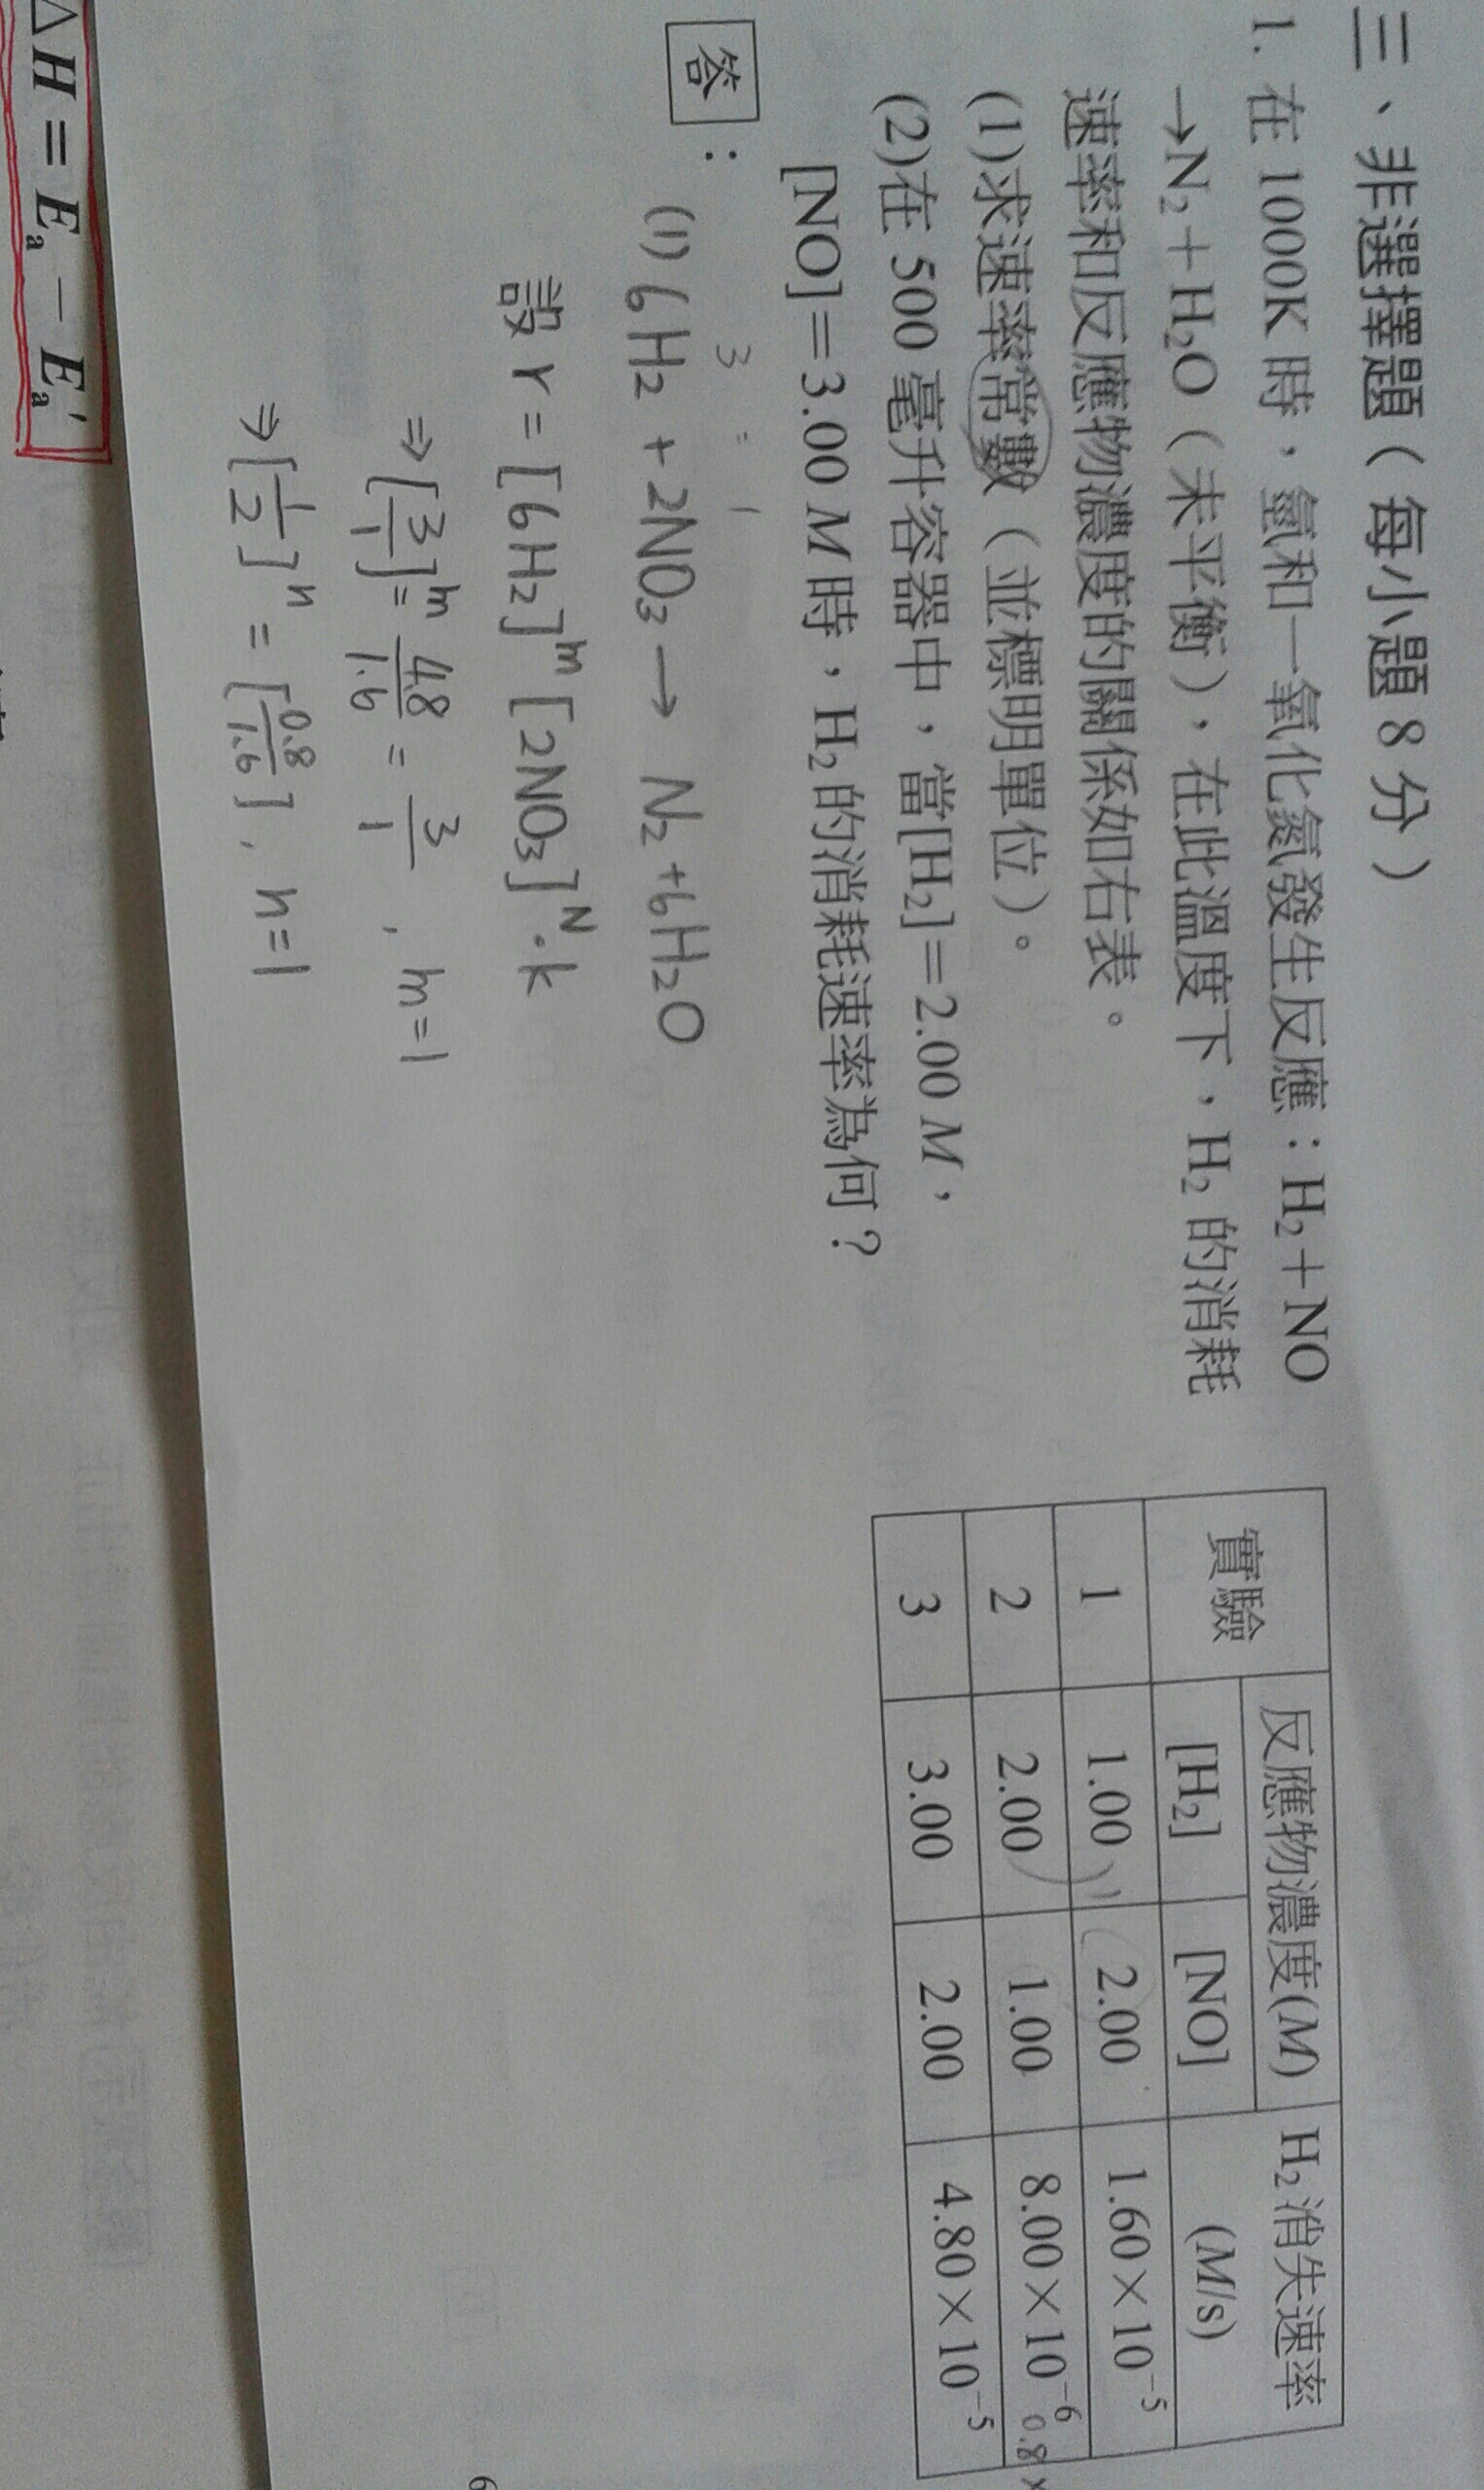 三、非選擇題(每小題8分)
1. 在 1000K 時,氫和一氧化氮發生反應:H₂+NO
→N₂+H₂O(未平衡),在此溫度下,H₂ 的消耗
速率和反應物濃度的關係如右表。
(1)求速率常數(並標明單位)。
(2)在 500 毫升容器中,當[H₂]=2.00 M,
[NO]=3.00 M 時,H₂ 的消耗速率為何?
實驗 反應物濃度(M) H₂ 消失速率
[H₂] [NO] (M/s)
1 1.00 2.00 1.60×10⁻⁵
2 2.00 1.00 8.00×10⁻⁶ 0.8×
3 3.00 2.00 4.80×10⁻⁵
答:
3 = 1
(1) 6H₂ + 2NO₃ → N₂ + 6H₂O
設 r = [6H₂]ᵐ [2NO₃]ᴺ · k
⇒ [3/1]ᵐ = 4.8/1.6 = 3/1 , m=1
⇒ [1/2]ⁿ = [0.8/1.6] , n=1
△H = Eₐ − Eₐ′
6